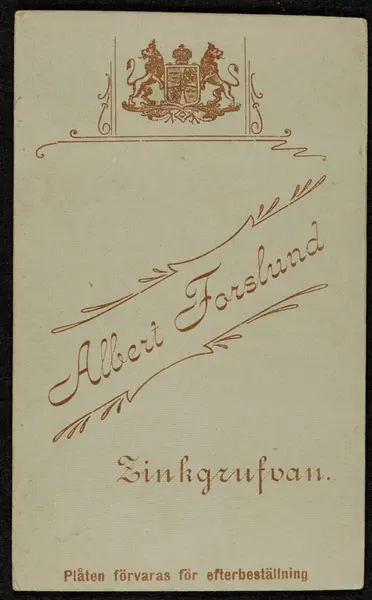 Albert Forslund
Zinkgrufvan.
Plåten förvaras för efterbeställning